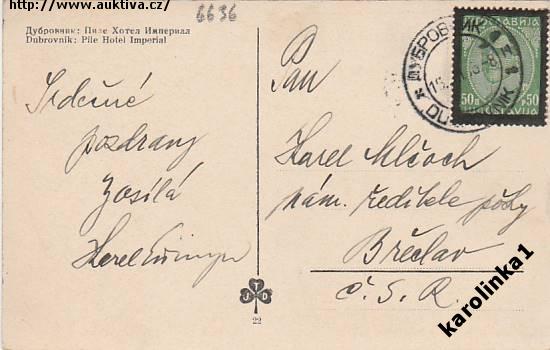 www.auktiva.cz
6636
Дубровник: Пиле Хотел Империал
Dubrovnik: Pile Hotel Imperial
Srdečné
pozdravy
zasílá
Karel
Pan
Karel Mlčoch
nám. ředitele pošty
Břeclav
Č. S. R.
ДУБРОВНИК
DUBROVNIK
50 50
ЈУГОСЛАВИЈА
JTD
22
karolinka1